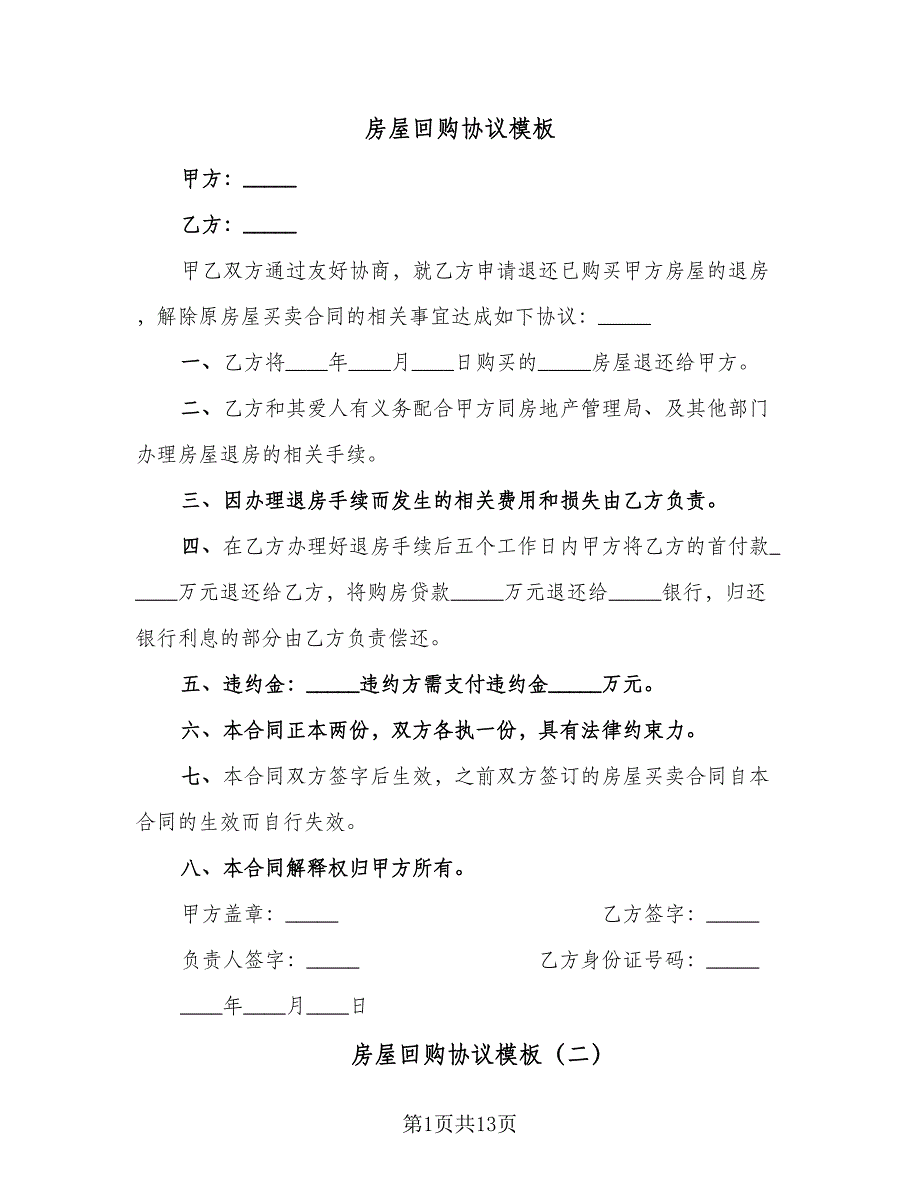 房屋回购协议模板
甲方：_____
乙方：_____
甲乙双方通过友好协商，就乙方申请退还已购买甲方房屋的退房
，解除原房屋买卖合同的相关事宜达成如下协议：_____
一、乙方将____年____月____日购买的_____房屋退还给甲方。
二、乙方和其爱人有义务配合甲方同房地产管理局、及其他部门
办理房屋退房的相关手续。
三、因办理退房手续而发生的相关费用和损失由乙方负责。
四、在乙方办理好退房手续后五个工作日内甲方将乙方的首付款_
____万元退还给乙方，将购房贷款_____万元退还给_____银行，归还
银行利息的部分由乙方负责偿还。
五、违约金：_____违约方需支付违约金_____万元。
六、本合同正本两份，双方各执一份，具有法律约束力。
七、本合同双方签字后生效，之前双方签订的房屋买卖合同自本
合同的生效而自行失效。
八、本合同解释权归甲方所有。
甲方盖章：_____ 乙方签字：_____
负责人签字：_____ 乙方身份证号码：_____
____年____月____日
房屋回购协议模板（二）
第1页共13页